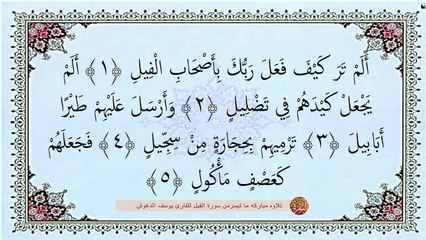 أَلَمْ تَرَ كَيْفَ فَعَلَ رَبُّكَ بِأَصْحَابِ الْفِيلِ ﴿١﴾ أَلَمْ
يَجْعَلْ كَيْدَهُمْ فِي تَضْلِيلٍ ﴿٢﴾ وَأَرْسَلَ عَلَيْهِمْ طَيْرًا
أَبَابِيلَ ﴿٣﴾ تَرْمِيهِمْ بِحِجَارَةٍ مِنْ سِجِّيلٍ ﴿٤﴾ فَجَعَلَهُمْ
كَعَصْفٍ مَأْكُولٍ ﴿٥﴾
تلاوه مباركه ما تيسرمن سورة الفيل للقارئ يوسف الدغوش